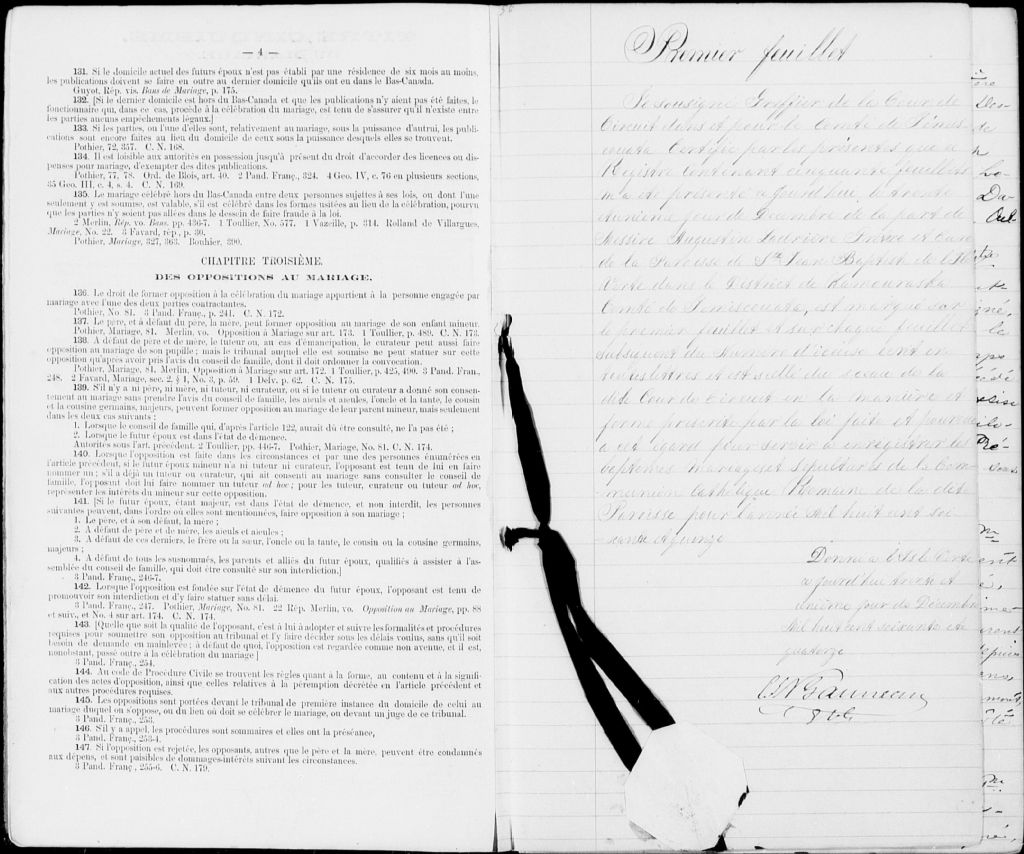 — 4 —
131. Si le domicile actuel des futurs époux n'est pas établi par une résidence de six mois au moins,
les publications doivent se faire en outre au dernier domicile qu'ils ont eu dans le Bas-Canada.
Guyot, Rép. vis. Bans de Mariage, p. 175.
132. [Si le dernier domicile est hors du Bas-Canada et que les publications n'y aient pas été faites, le
fonctionnaire qui, dans ce cas, procède à la célébration du mariage, est tenu de s'assurer qu'il n'existe entre
les parties aucuns empêchements légaux.]
133. Si les parties, ou l'une d'elles sont, relativement au mariage, sous la puissance d'autrui, les publi-
cations sont encore faites au lieu du domicile de ceux sous la puissance desquels elles se trouvent.
Pothier, 72, 357. C. N. 168.
134. Il est loisible aux autorités en possession jusqu'à présent du droit d'accorder des licences ou dis-
penses pour mariage, d'exempter des dites publications.
Pothier, 77, 78. Ord. de Blois, art. 40. 2 Pand. Franç., 324. 4 Geo. IV, c. 76 en plusieurs sections,
35 Geo. III, c. 4, s. 4. C. N. 169.
135. Le mariage célébré hors du Bas-Canada entre deux personnes sujettes à ses lois, ou dont l'une
seulement y est soumise, est valable, s'il est célébré dans les formes usitées au lieu de la célébration, pourvu
que les parties n'y soient pas allées dans le dessein de faire fraude à la loi.
2 Merlin, Rép. vo. Bans, pp. 436-7. 1 Toullier, No. 577. 1 Vazeille, p. 314. Rolland de Villargues,
Mariage, No. 22. 3 Favard, rép., p. 30.
Pothier, Mariage, 327, 363. Bouhier, 390.
CHAPITRE TROISIÈME.
DES OPPOSITIONS AU MARIAGE.
136. Le droit de former opposition à la célébration du mariage appartient à la personne engagée par
mariage avec l'une des deux parties contractantes.
Pothier, No. 81. 3 Pand. Franç., p. 241. C. N. 172.
137. Le père, et à défaut du père, la mère, peut former opposition au mariage de son enfant mineur.
Pothier, Mariage, 81. Merlin, vo. Opposition à Mariage sur art. 173. 1 Toullier, p. 489. C. N. 173.
138. A défaut de père et de mère, le tuteur ou, au cas d'émancipation, le curateur peut aussi faire
opposition au mariage de son pupille; mais le tribunal auquel elle est soumise ne peut statuer sur cette
opposition qu'après avoir pris l'avis du conseil de famille, dont il doit ordonner la convocation.
Pothier, Mariage, 81. Merlin, Opposition à Mariage sur art. 172. 1 Toullier, p. 425, 490. 3 Pand. Fran.,
248. 2 Favard, Mariage, sec. 2, § 1, No. 3, p. 59. 1 Delv. p. 62. C. N. 175.
139. S'il n'y a ni père, ni mère, ni tuteur, ni curateur, ou si le tuteur ou curateur a donné son consen-
tement au mariage sans prendre l'avis du conseil de famille, les aïeuls et aïeules, l'oncle et la tante, le cousin
et la cousine germains, majeurs, peuvent former opposition au mariage de leur parent mineur, mais seulement
dans les deux cas suivants :
1. Lorsque le conseil de famille qui, d'après l'article 122, aurait dû être consulté, ne l'a pas été ;
2. Lorsque le futur époux est dans l'état de démence.
Autorités sous l'art. précédent. 2 Toullier, pp. 446-7. Pothier, Mariage, No. 81. C. N. 174.
140. Lorsque l'opposition est faite dans les circonstances et par une des personnes énumérées en
l'article précédent, si le futur époux mineur n'a ni tuteur ni curateur, l'opposant est tenu de lui en faire
nommer un ; s'il a déjà un tuteur ou curateur, qui ait consenti au mariage sans consulter le conseil de
famille, l'opposant doit lui faire nommer un tuteur ad hoc ; pour les tuteur, curateur ou tuteur ad hoc,
représenter les intérêts du mineur sur cette opposition.
141. [Si le futur époux, étant majeur, est dans l'état de démence, et non interdit, les personnes
suivantes peuvent, dans l'ordre où elles sont mentionnées, faire opposition à son mariage ;
1. Le père, et à son défaut, la mère ;
2. A défaut de père et de mère, les aïeuls et aïeules ;
3. A défaut de ces derniers, le frère ou la sœur, l'oncle ou la tante, le cousin ou la cousine germains,
majeurs ;
4. A défaut de tous les susnommés, les parents et alliés du futur époux, qualifiés à assister à l'as-
semblée du conseil de famille, qui doit être consulté sur son interdiction.]
3 Pand. Franç., 246-7.
142. Lorsque l'opposition est fondée sur l'état de démence du futur époux, l'opposant est tenu de
promouvoir son interdiction et d'y faire statuer sans délai.
3 Pand. Franç., 247. Pothier, Mariage, No. 81. 22 Rép. Merlin, vo. Opposition au Mariage, pp. 88
et suiv., et No. 4 sur art. 174. C. N. 174.
143. [Quelle que soit la qualité de l'opposant, c'est à lui à adopter et suivre les formalités et procédures
requises pour soumettre son opposition au tribunal et l'y faire décider sous les délais voulus, sans qu'il soit
besoin de demande en mainlevée ; à défaut de quoi, l'opposition est regardée comme non avenue, et il est,
nonobstant, passé outre à la célébration du mariage.]
3 Pand. Franç., 254.
144. Au code de Procédure Civile se trouvent les règles quant à la forme, au contenu et à la signifi-
cation des actes d'opposition, ainsi que celles relatives à la péremption décrétée en l'article précédent et
aux autres procédures requises.
145. Les oppositions sont portées devant le tribunal de première instance du domicile de celui au
mariage duquel on s'oppose, ou du lieu où doit se célébrer le mariage, ou devant un juge de ce tribunal.
3 Pand. Franç., 253.
146. S'il y a appel, les procédures sont sommaires et elles ont la préséance,
3 Pand. Franç., 253-4.
147. Si l'opposition est rejetée, les opposants, autres que le père et la mère, peuvent être condamnés
aux dépens, et sont passibles de dommages-intérêts suivant les circonstances.
3 Pand. Franç., 255-6. C. N. 179.
Premier feuillet
Je soussigné Greffier de la Cour de
Circuit dans et pour le Comté de Témis-
couata Certifie par les présentes que ce
Régistre contenant cinquante feuillets
m'a été présenté aujourd'hui trente
unième jour de Décembre de la part de
Messire Augustin Ladrière Prêtre et Curé
de la Paroisse de St Jean Baptiste de l'Isle
Verte dans le District de Kamouraska
Comté de Temiscouata, est marqué sur
le premier feuillet et sur chaque feuillet
subséquent du numéro d'icelui écrit en
toutes lettres et est scellé du sceau de la
dite Cour de Circuit en la manière et
forme prescrite par la loi faite et pourvue
à cet égard pour servir à enregistrer les
baptêmes mariages et sépultures de la Com-
munion Catholique Romaine de la dite
Paroisse pour l'année mil huit cent soi-
xante et quinze
Donné à l'Isle Verte
ce jourd'hui trente et
unième jour de Décembre
Mil huit cent soixante et
quatorze